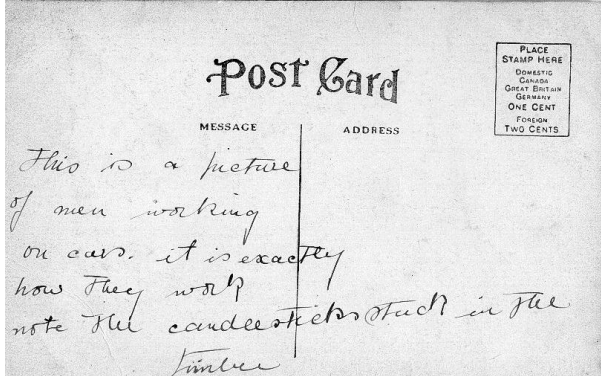 Post Card
PLACE
STAMP HERE
DOMESTIC
CANADA
GREAT BRITAIN
GERMANY
ONE CENT
FOREIGN
TWO CENTS
MESSAGE
ADDRESS
This is a picture
of men working
on cars. it is exactly
how they work
note the candlesticks stuck in the
timber